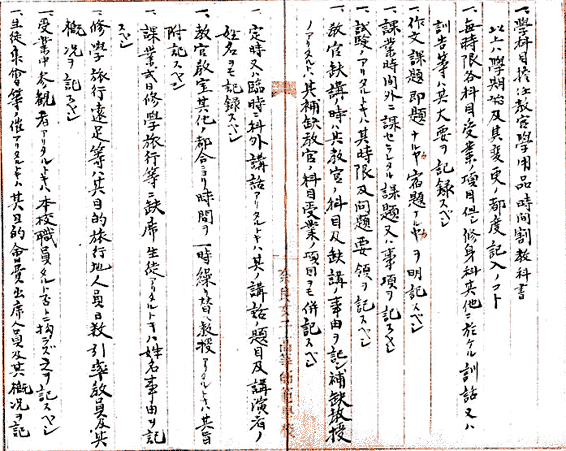 一、學科目擔任教官學用品時間割教科書
以上ハ學期始及其変更ノ都度記入ノコト
一、毎時限各科目受業ノ項目但シ修身科其他ニ於ケル訓話又ハ
訓告等ハ其大要ヲ記録スベシ
一、作文課題即題ナルヤ宿題ナルヤヲ明記スベシ
一、課業時間外ニ課セラレタル課題又ハ事項ヲ記スベシ
一、試験ノアリタルトキハ其時限及問題要領ヲ記スベシ
一、教官缺講ノ時ハ其教官ノ科目及缺講ノ事由ヲ記シ補缺教授
ノアリタルトキハ其補缺教官ノ科目受業ノ項目ヲモ併記スベシ
奈良女子高等師範學校
一、定時又ハ臨時ニ科外講話アリタルトキハ其ノ講話ノ題目及講演者ノ
姓名ヲモ記録スベシ
一、教官教室其他ノ都合ニヨリ時間ヲ一時繰リ替ヘ教授アリタルトキハ其旨
附記スベシ
一、課業式日修學旅行等ニ缺席生徒アリタルトキハ姓名事由ヲ記
スベシ
一、修學旅行遠足等ハ其目的旅行地人員日数引率教員及其
概況ヲ記スベシ
一、受業中参観者アリタルトキハ本校職員タルト否トニ拘ラズ之ヲ記スベシ
一、生徒集會等ノ催アリタルトキハ其目的會費出席人員及其概況ヲ記